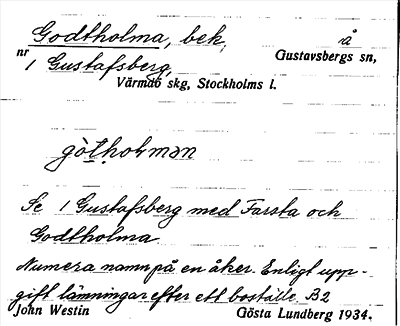 Godtholma, bek, å
nr 1 Gustafsberg, Gustavsbergs sn,
Värmdö skg, Stockholms l.
gòt̥hoƚmən
Se 1 Gustafsberg med Farsta och
Godtholma.
Numera namn på en åker. Enligt upp-
gift lämningar efter ett boställe. B2
John Westin Gösta Lundberg 1934.